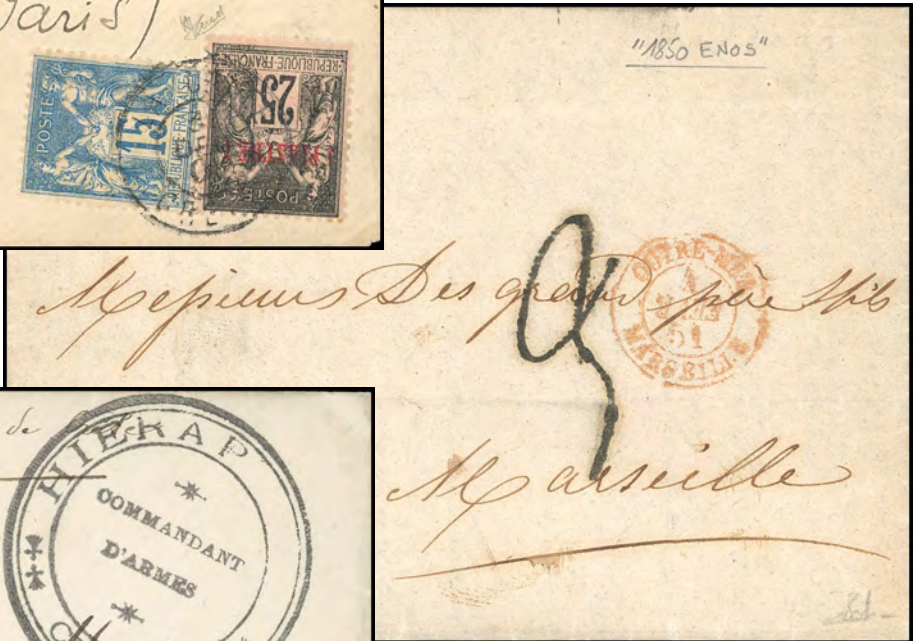 Paris)
POSTES
15
REPUBLIQUE FRANÇAISE
REPUBLIQUE FRANÇAISE
25
1 PIASTRE 1
POSTES
"1850 ENOS"
Messieurs Des grands père & fils
OUTRE-MER
1
51
MARSEILLE
Marseille
de
HIERAP
COMMANDANT
D'ARMES